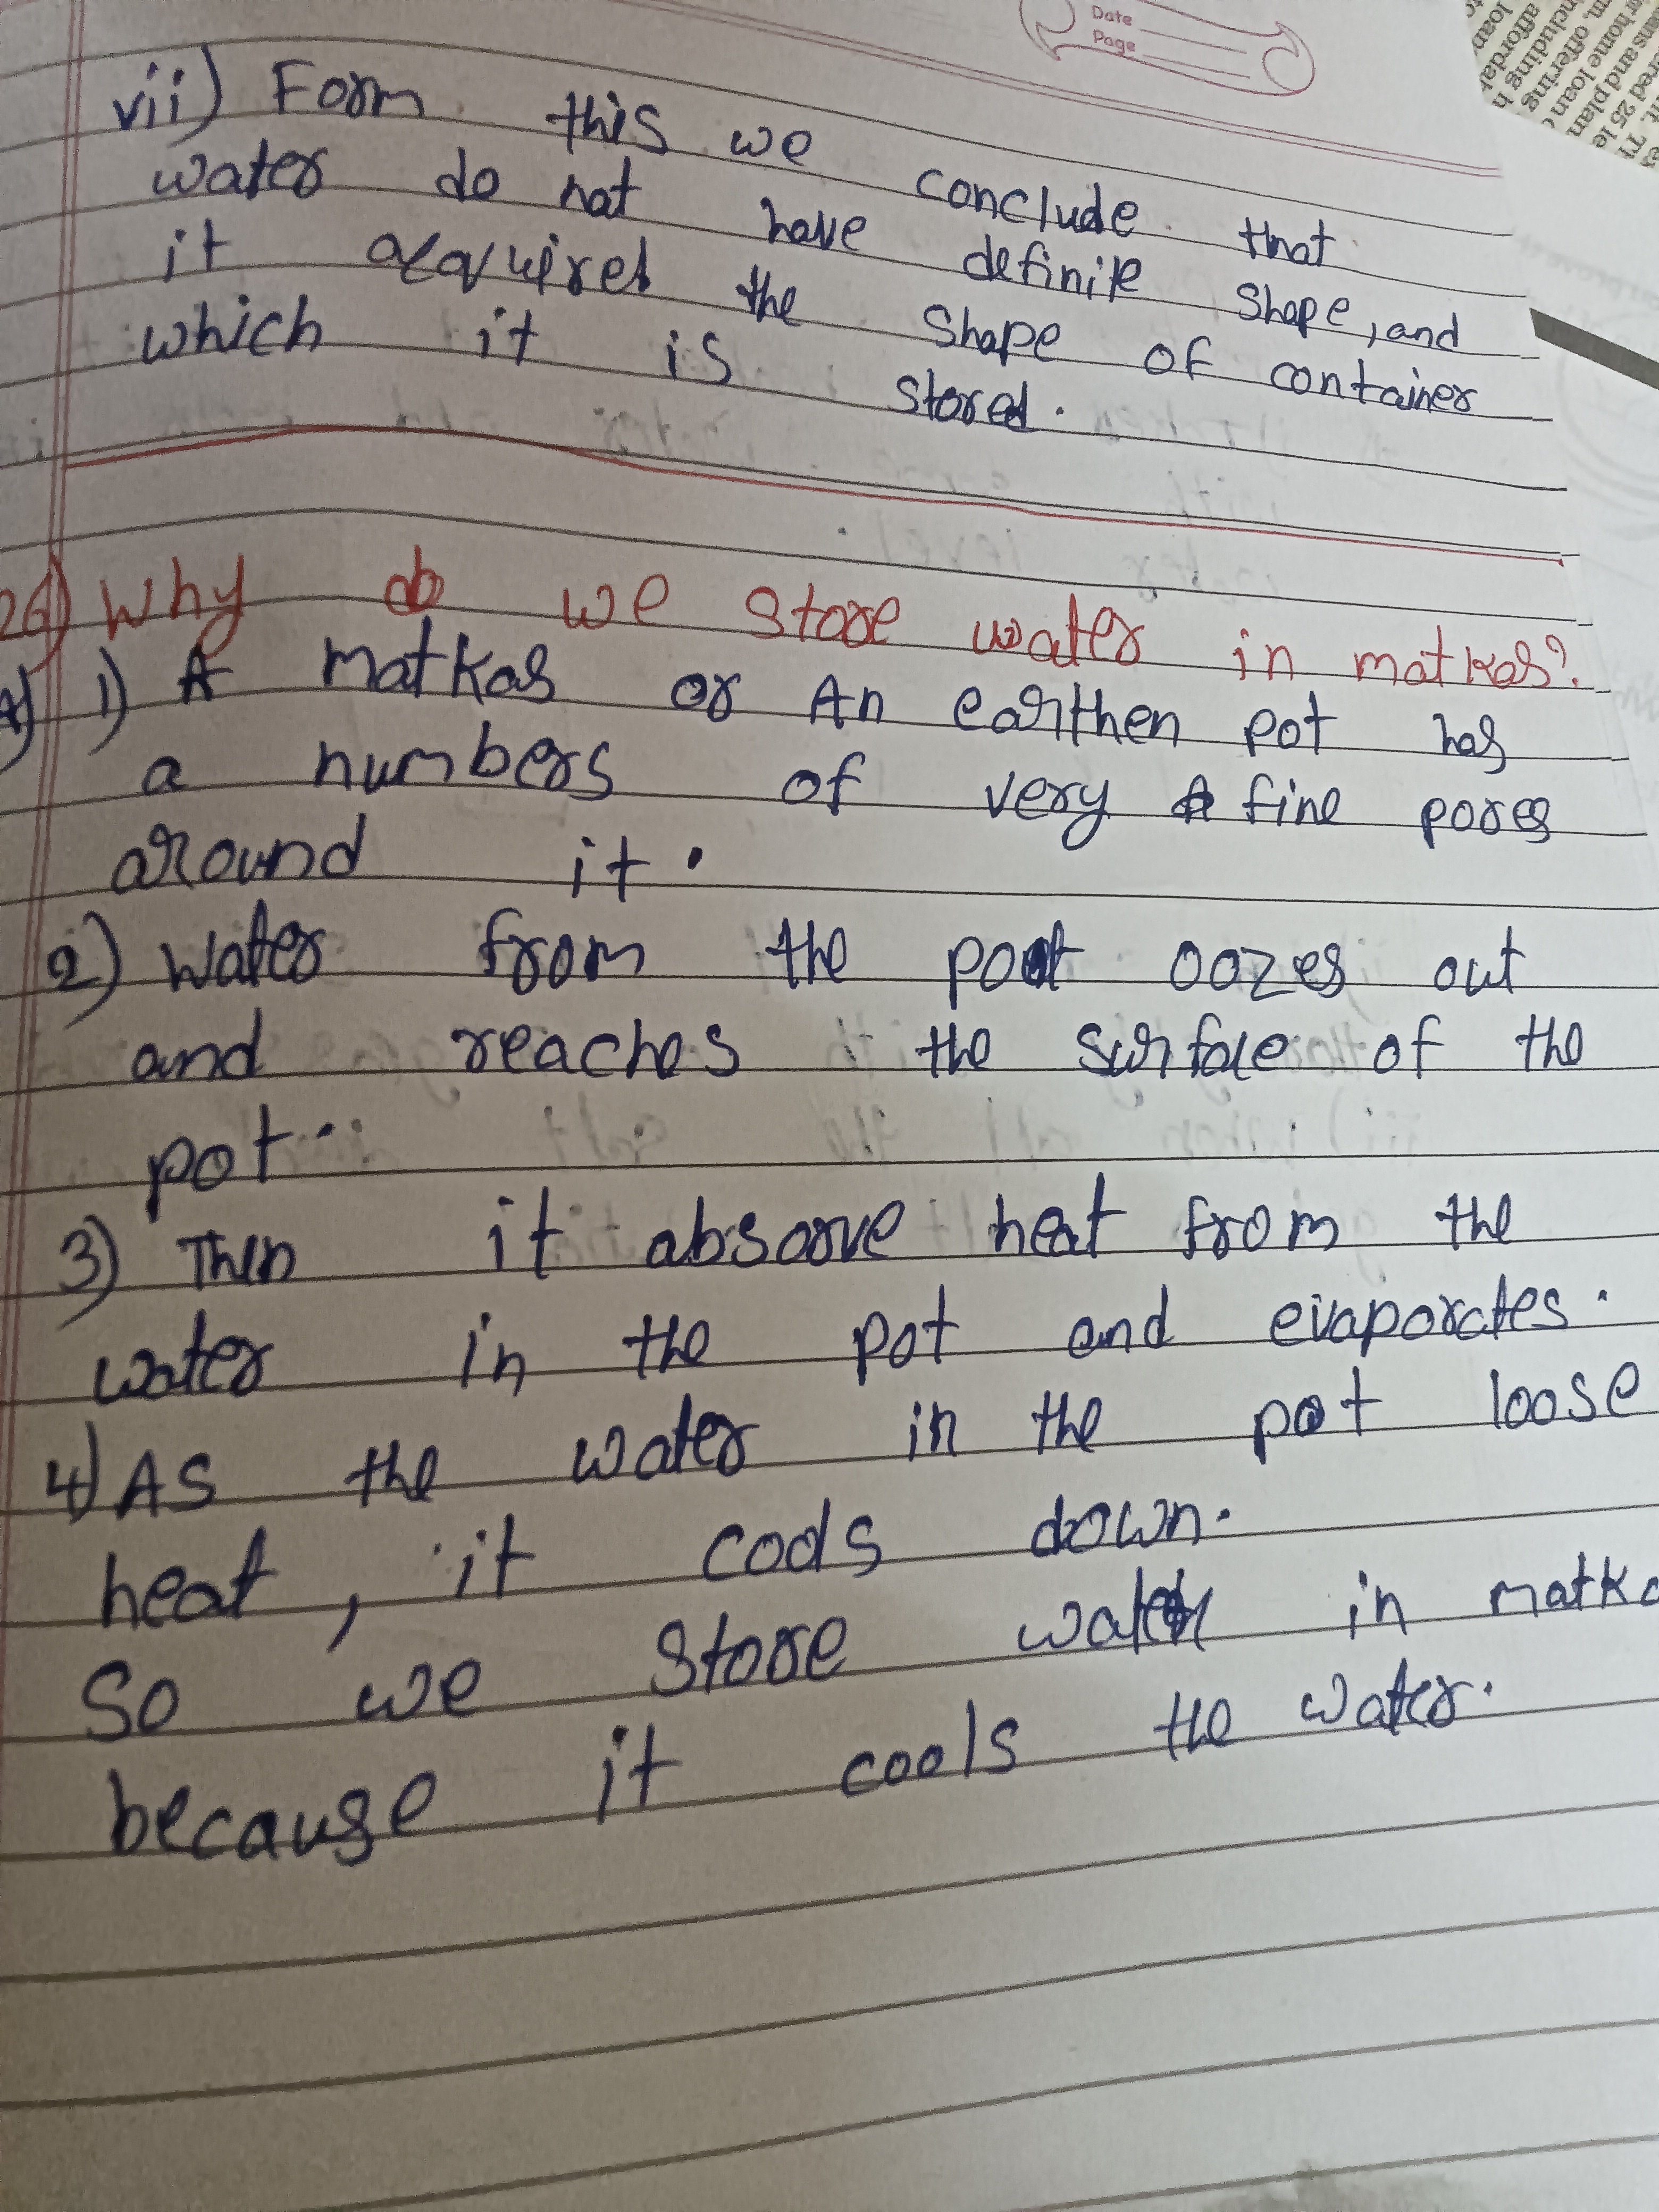 Date
Page
vii) Form this we conclude that
water do not have definite shape, and
it acquires the shape of container
which it is stored.
26) Why do we store water in matkas?
A) 1) A matkas or An earthen pot has
a numbers of very fine pores
around it.
2) Water from the pot oozes out
and reaches the surface of the
pot.
3) Then it absorve heat from the
water in the pot and evaporates.
4) As the water in the pot loose
heat, it cools down.
So we store water in matka
because it cools the water.